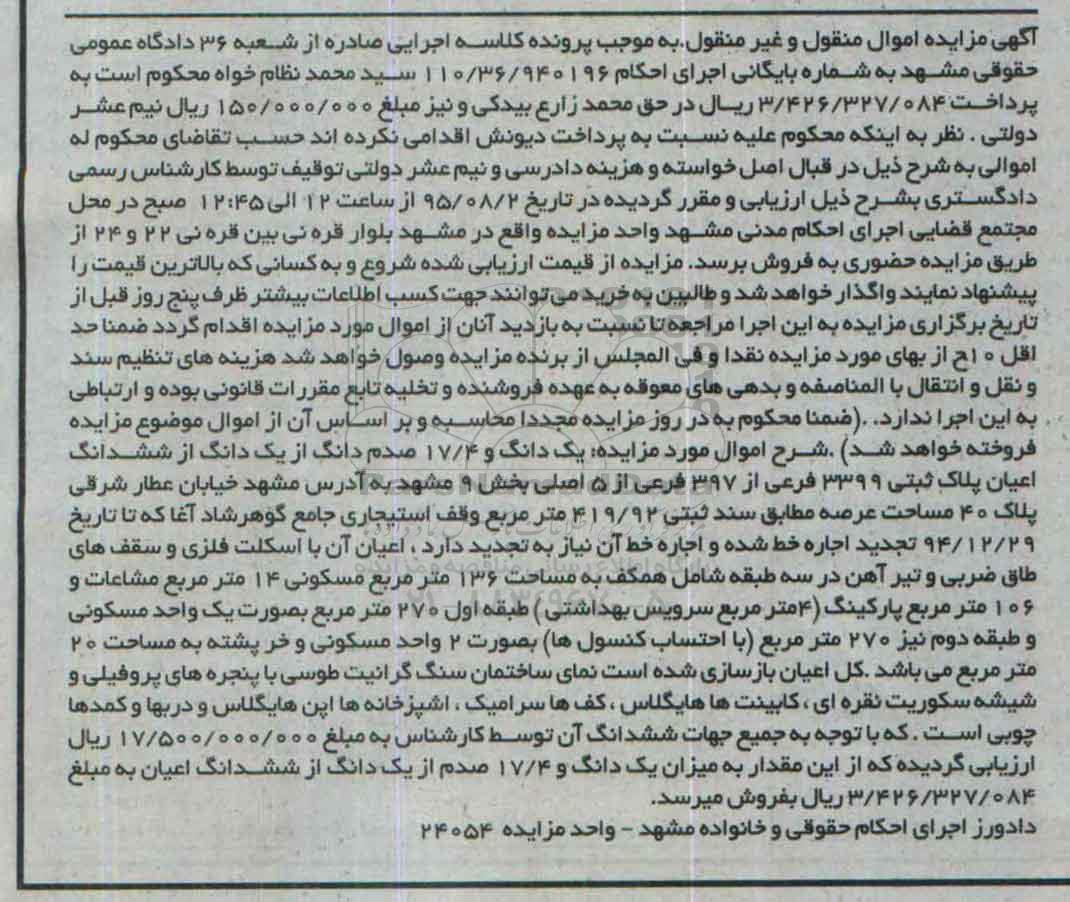 آگهی مزایده اموال منقول و غیر منقول.به موجب پرونده کلاسه اجرایی صادره از شعبه ۳۶ دادگاه عمومی
حقوقی مشهد به شماره بایگانی اجرای احکام ۱۱۰/۳۶/۹۴۰۱۹۶ سید محمد نظام خواه محکوم است به
پرداخت ۳/۴۲۶/۳۲۷/۰۸۴ ریال در حق محمد زارع بیدکی و نیز مبلغ ۱۵۰/۰۰۰/۰۰۰ ریال نیم عشر
دولتی . نظر به اینکه محکوم علیه نسبت به پرداخت دیونش اقدامی نکرده اند حسب تقاضای محکوم له
اموالی به شرح ذیل در قبال اصل خواسته و هزینه دادرسی و نیم عشر دولتی توقیف توسط کارشناس رسمی
دادگستری بشرح ذیل ارزیابی و مقرر گردیده در تاریخ ۹۵/۰۸/۲ از ساعت ۱۲ الی ۱۲:۴۵ صبح در محل
مجتمع قضایی اجرای احکام مدنی مشهد واحد مزایده واقع در مشهد بلوار قره نی بین قره نی ۲۲ و ۲۴ از
طریق مزایده حضوری به فروش برسد. مزایده از قیمت ارزیابی شده شروع و به کسانی که بالاترین قیمت را
پیشنهاد نمایند واگذار خواهد شد و طالبین به خرید می توانند جهت کسب اطلاعات بیشتر ظرف پنج روز قبل از
تاریخ برگزاری مزایده به این اجرا مراجعه تا نسبت به بازدید آنان از اموال مورد مزایده اقدام گردد ضمنا حد
اقل ۱۰ح از بهای مورد مزایده نقدا و فی المجلس از برنده مزایده وصول خواهد شد هزینه های تنظیم سند
و نقل و انتقال با المناصفه و بدهی های معوقه به عهده فروشنده و تخلیه تابع مقررات قانونی بوده و ارتباطی
به این اجرا ندارد. .(ضمنا محکوم به در روز مزایده مجددا محاسبه و بر اساس آن از اموال موضوع مزایده
فروخته خواهد شد) .شرح اموال مورد مزایده: یک دانگ و ۱۷/۴ صدم دانگ از یک دانگ از ششدانگ
اعیان پلاک ثبتی ۳۳۹۹ فرعی از ۳۹۷ فرعی از ۵ اصلی بخش ۹ مشهد به آدرس مشهد خیابان عطار شرقی
پلاک ۴۰ مساحت عرصه مطابق سند ثبتی ۴۱۹/۹۲ متر مربع وقف استیجاری جامع گوهرشاد آغا که تا تاریخ
۹۴/۱۲/۲۹ تجدید اجاره خط شده و اجاره خط آن نیاز به تجدید دارد ، اعیان آن با اسکلت فلزی و سقف های
طاق ضربی و تیر آهن در سه طبقه شامل همکف به مساحت ۱۳۶ متر مربع مسکونی ۱۴ متر مربع مشاعات و
۱۰۶ متر مربع پارکینگ (۴متر مربع سرویس بهداشتی) طبقه اول ۲۷۰ متر مربع بصورت یک واحد مسکونی
و طبقه دوم نیز ۲۷۰ متر مربع (با احتساب کنسول ها) بصورت ۲ واحد مسکونی و خر پشته به مساحت ۲۰
متر مربع می باشد .کل اعیان بازسازی شده است نمای ساختمان سنگ گرانیت طوسی با پنجره های پروفیلی و
شیشه سکوریت نقره ای ، کابینت ها هایگلاس ، کف ها سرامیک ، اشپزخانه ها اپن هایگلاس و دربها و کمدها
چوبی است . که با توجه به جمیع جهات ششدانگ آن توسط کارشناس به مبلغ ۱۷/۵۰۰/۰۰۰/۰۰۰ ریال
ارزیابی گردیده که از این مقدار به میزان یک دانگ و ۱۷/۴ صدم از یک دانگ از ششدانگ اعیان به مبلغ
۳/۴۲۶/۳۲۷/۰۸۴ ریال بفروش میرسد.
دادورز اجرای احکام حقوقی و خانواده مشهد - واحد مزایده ۲۴۰۵۴